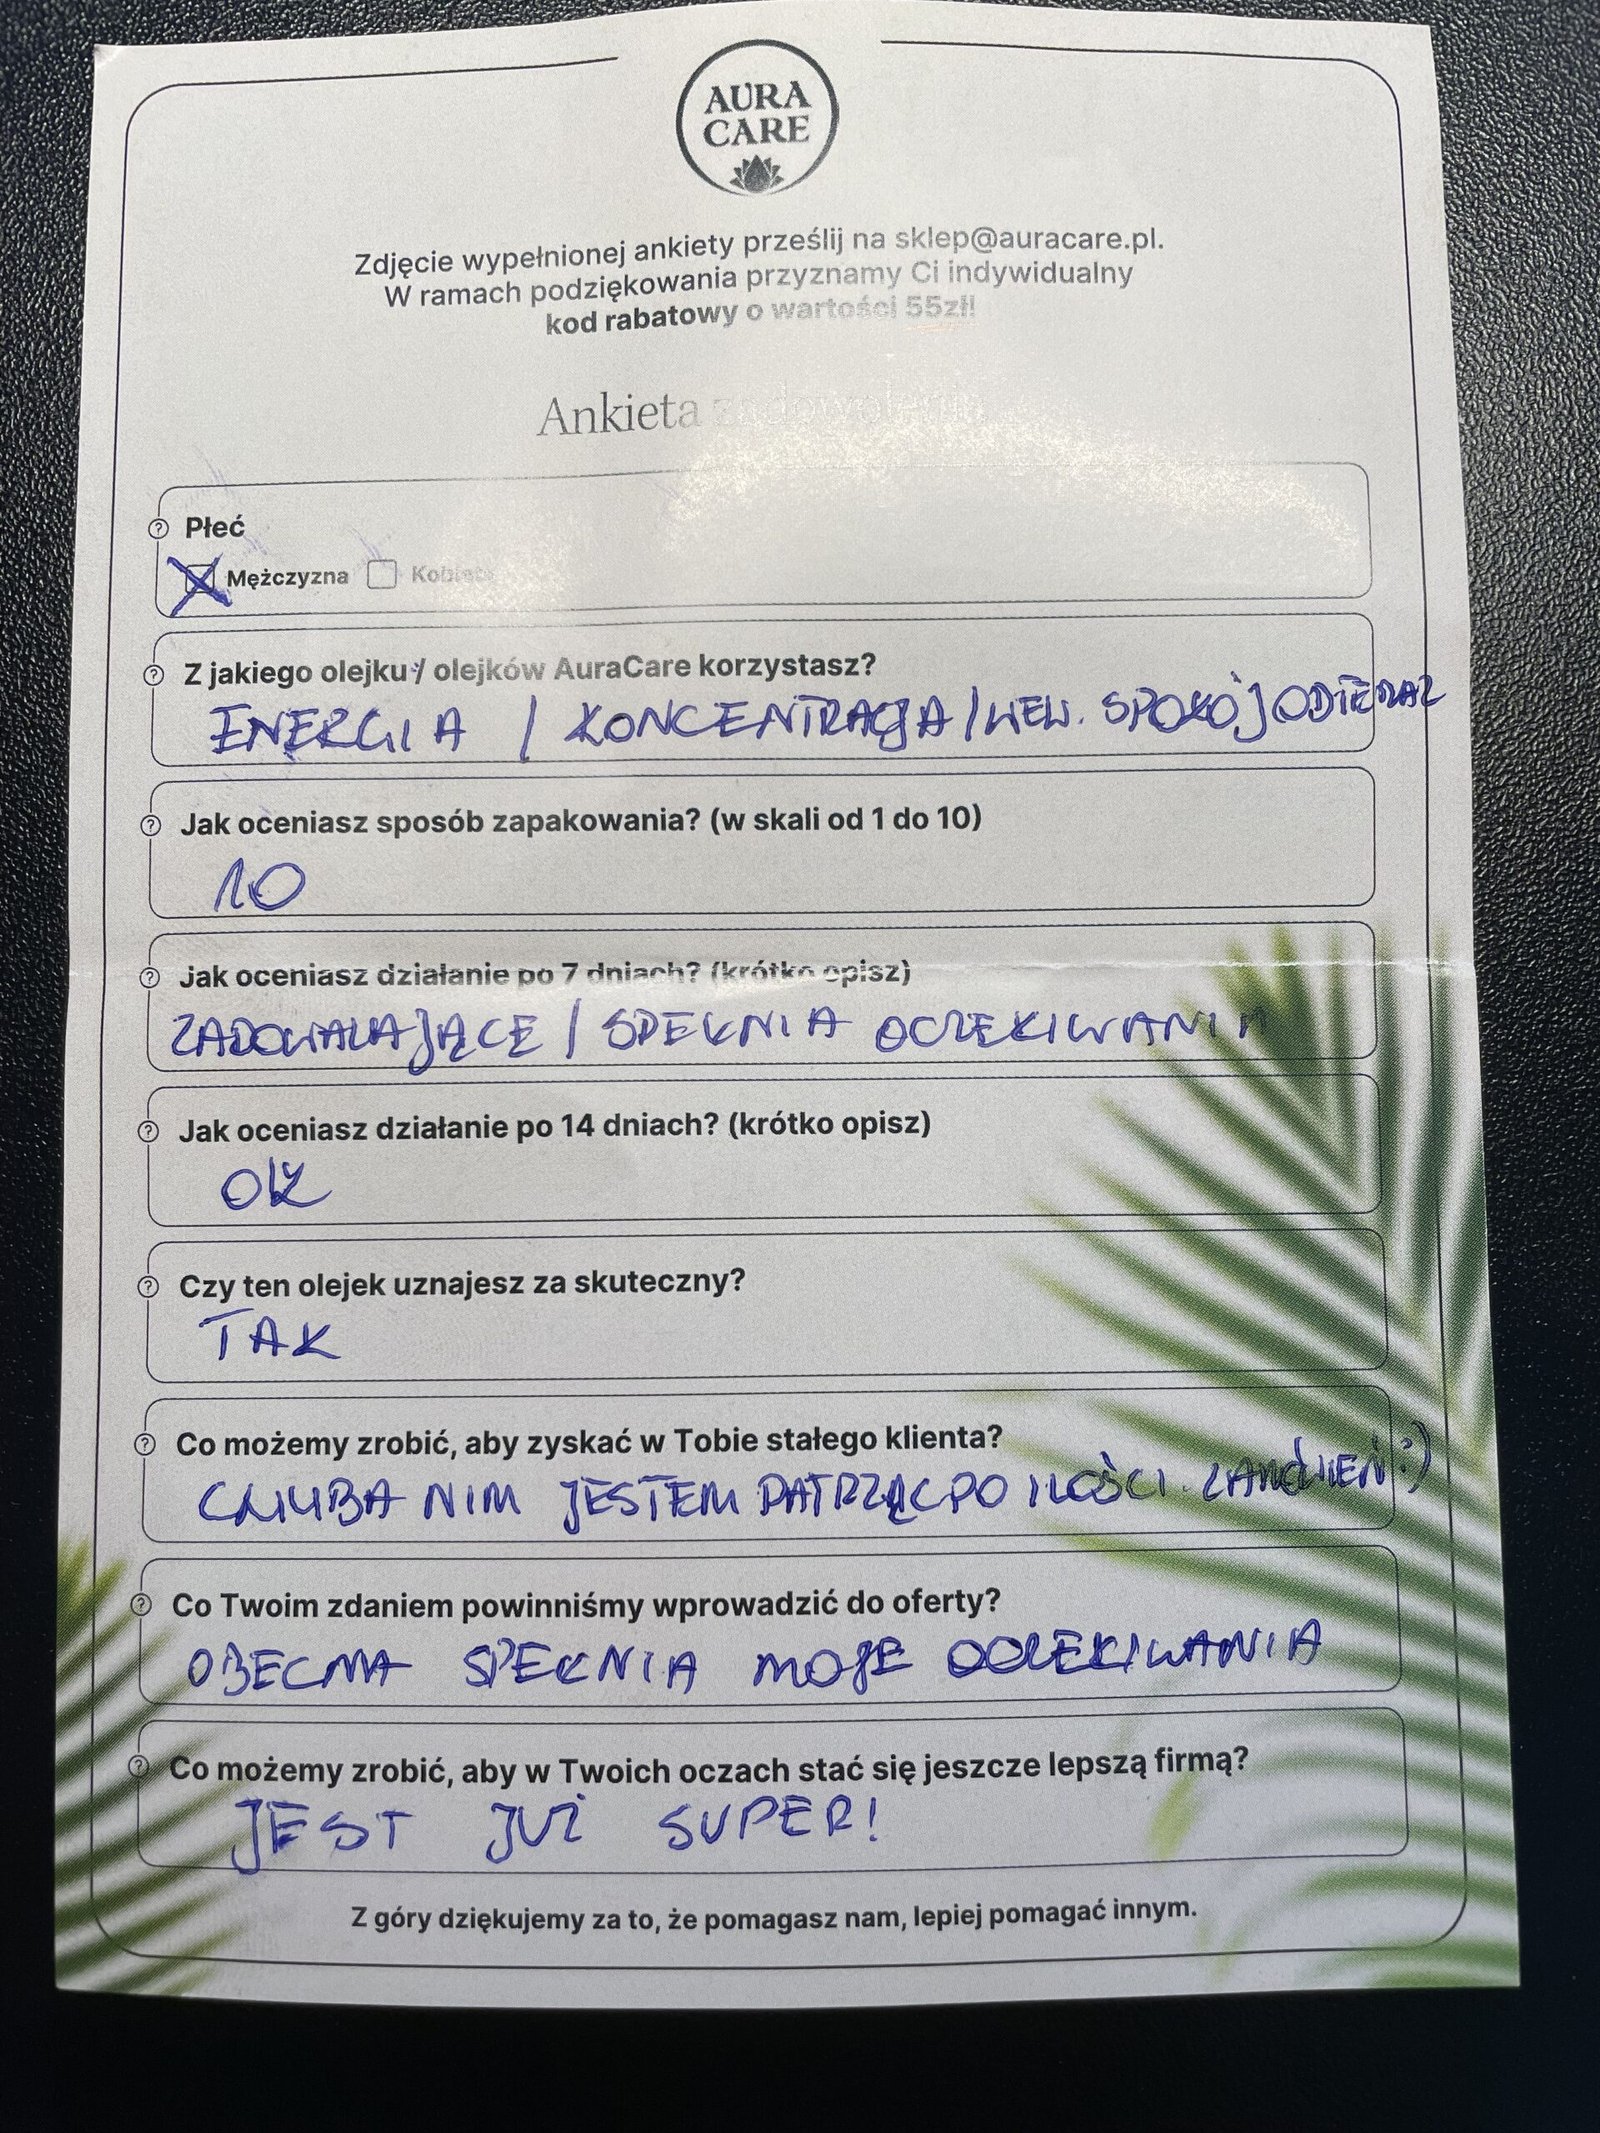 AURA
CARE
Zdjęcie wypełnionej ankiety prześlij na sklep@auracare.pl.
W ramach podziękowania przyznamy Ci indywidualny
kod rabatowy o wartości 55zł!
Ankieta zadowolenia
Płeć
Mężczyzna Kobieta
Z jakiego olejku / olejków AuraCare korzystasz?
ENERGIA / KONCENTRACJA / WEW. SPOKÓJ OD TERAZ
Jak oceniasz sposób zapakowania? (w skali od 1 do 10)
10
Jak oceniasz działanie po 7 dniach? (krótko opisz)
ZADOWALAJĄCE / SPEŁNIA OCZEKIWANIA
Jak oceniasz działanie po 14 dniach? (krótko opisz)
OK
Czy ten olejek uznajesz za skuteczny?
TAK
Co możemy zrobić, aby zyskać w Tobie stałego klienta?
CHYBA NIM JESTEM PATRZĄC PO ILOŚCI ZAMÓWIEŃ :)
Co Twoim zdaniem powinniśmy wprowadzić do oferty?
OBECNA SPEŁNIA MOJE OCZEKIWANIA
Co możemy zrobić, aby w Twoich oczach stać się jeszcze lepszą firmą?
JEST JUŻ SUPER!
Z góry dziękujemy za to, że pomagasz nam, lepiej pomagać innym.